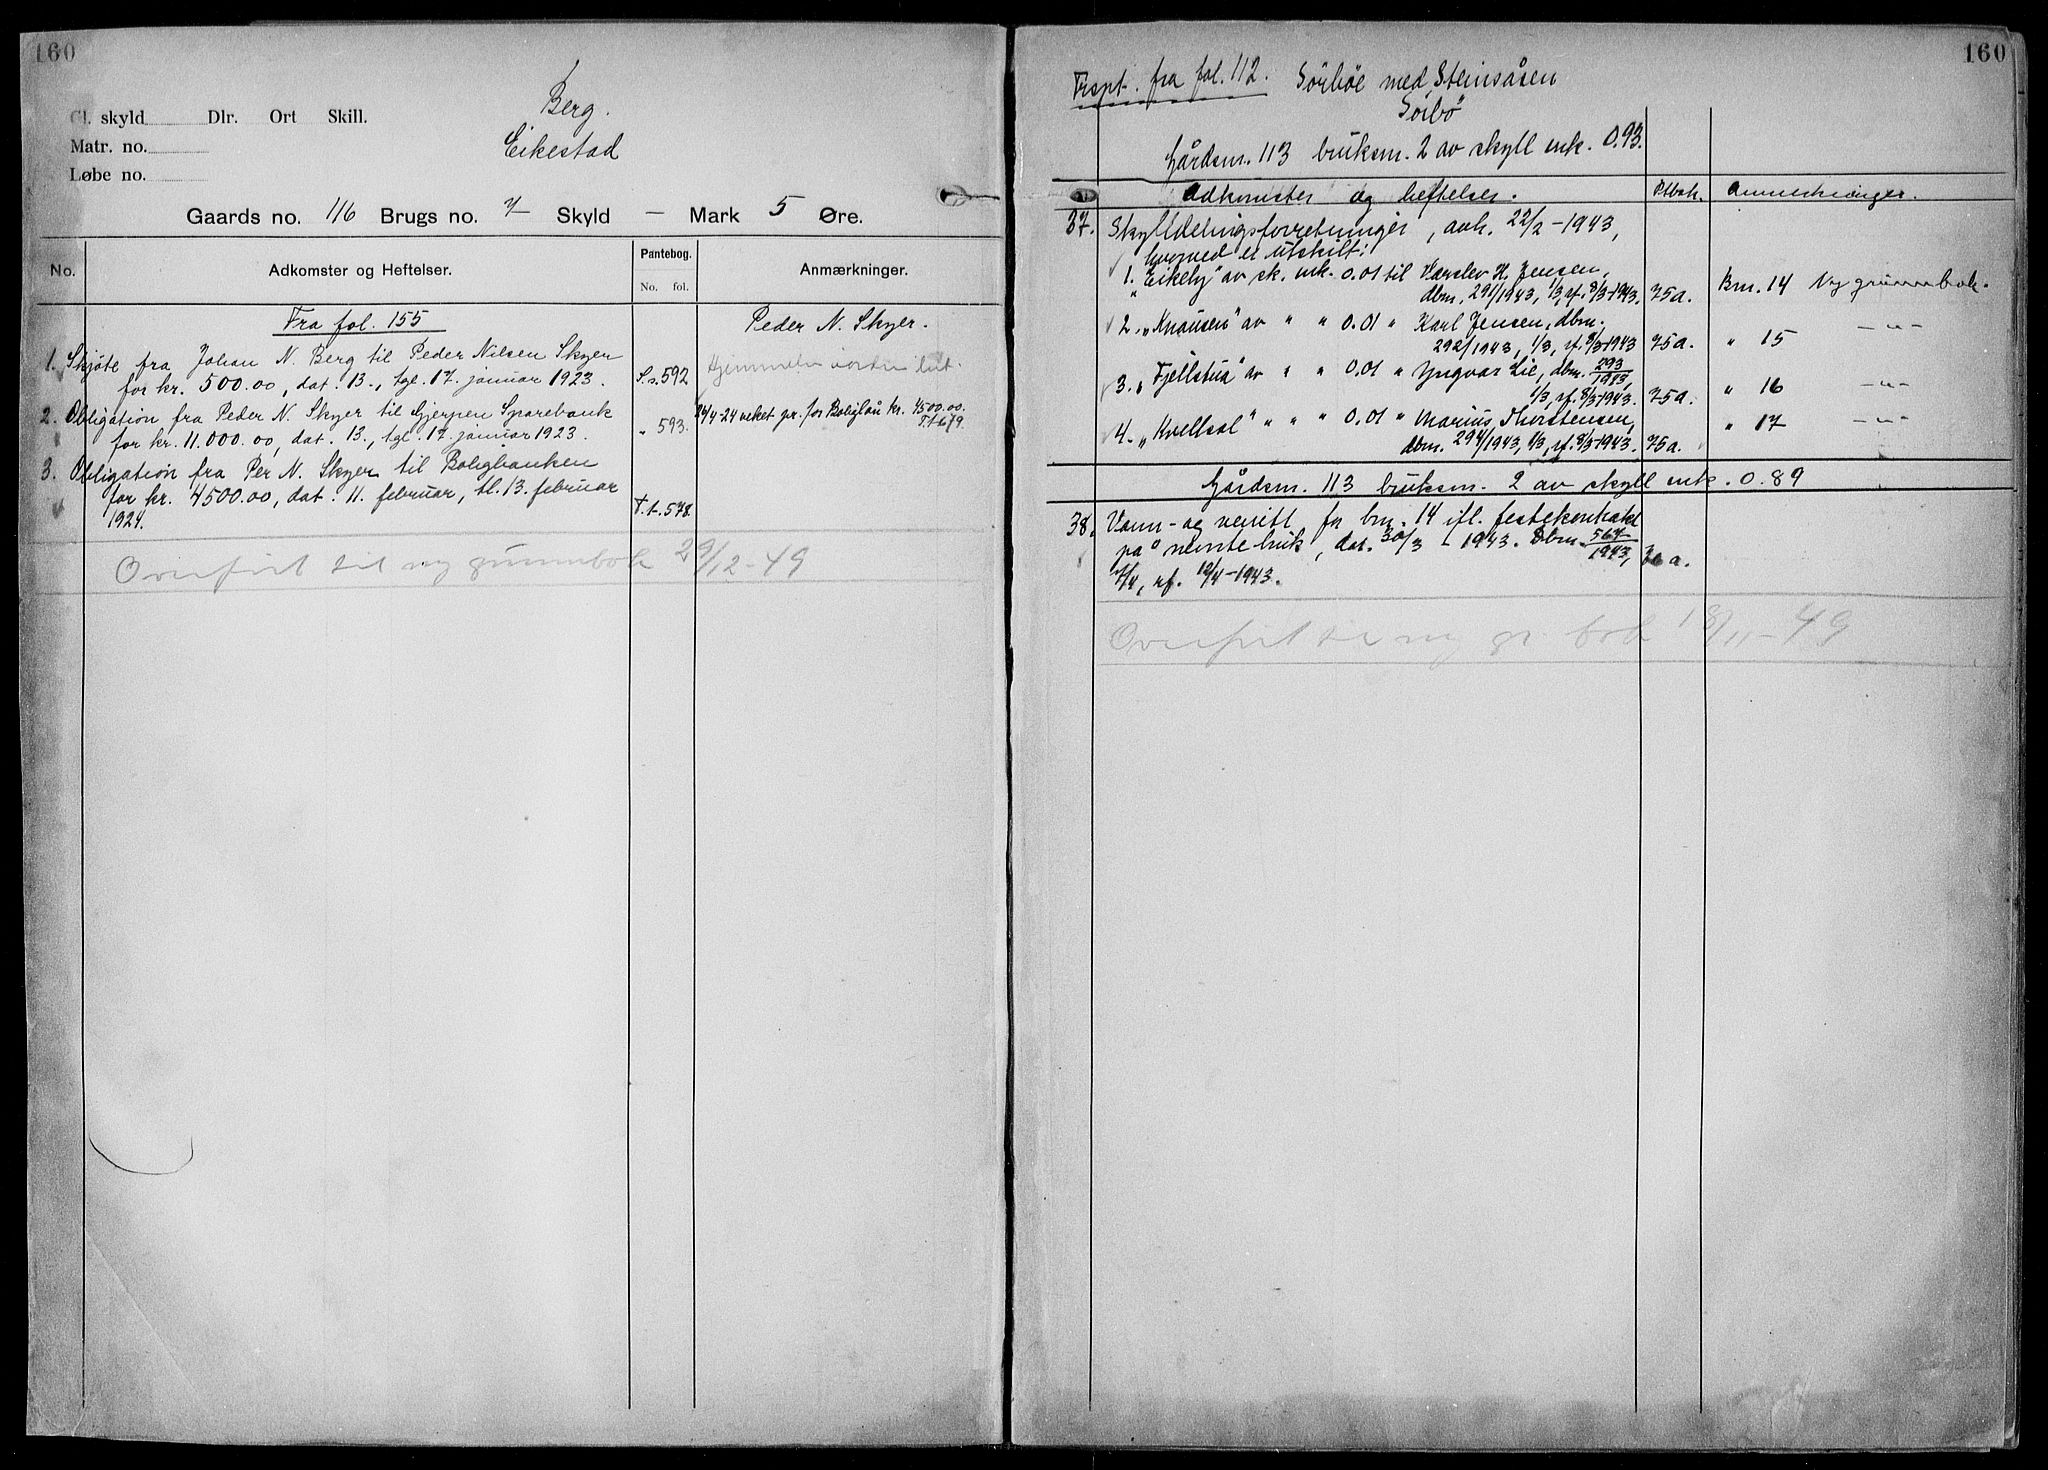 160
Gl. skyld Dlr. Ort Skill.
Matr. no.
Løbe no.
Berg.
Eikestad
Gaards no. 116 Brugs no. 7 Skyld — Mark 5 Øre.
No. Adkomster og Heftelser. Pantebog. No. fol. Anmærkninger.
Fra fol. 155 Peder N. Skyer.
1. Skjøte fra Johan N. Berg til Peder Nilsen Skyer
for kr. 500.00, dat. 13., tgl. 17. januar 1923. S.s. 592 Hjemmelen
2. Obligation fra Peder N. Skyer til Gjerpen Sparebank
for kr. 11.000.00, dat. 13., tgl. 17. januar 1923. " 593. 24/4-24 veket pr. for Boliglån kr. 4500.00.
T.t. 679.
3. Obligation fra Per N. Skyer til Boligbanken
for kr. 4500.00, dat. 11. februar, tl. 13. februar
1924. T.t. 578.
Overført til ny grunnbok 29/12-49
160
Trspt. fra fol. 112. Sörböe med Steinsåsen
Sörbö
Gårdsnr. 113 bruksnr. 2 av skyll mk. 0.93.
Adkomster og heftelser. Ptbok. Anmerkninger.
37. Skylldelingsforretninger, avh. 22/2-1943,
hvorved er utskilt:
1. "Eikely" av sk. mk. 0.01 til H. Jensen,
dbnr. 291/1943, 1/3, rf. 8/3-1943. 75a. Bnr. 14 Ny grunnbok.
2. "Knausen" av " " 0.01 " Karl Jensen, dbnr.
292/1943, 1/3, rf. 8/3-1943 75a. " 15 — " —
3. "Fjellstua" av " " 0.01 " Yngvar Lie, dbnr. 293/1943,
1/3, rf. 8/3-1943. 75a. " 16 — " —
4. "Kvellsol" " " " 0.01 " Marius Thorstensen,
dbnr. 294/1943, 1/3, rf. 8/3-1943. 75a. " 17 — " —
Gårdsnr. 113 bruksnr. 2 av skyll mk. 0.89
38. Vann- og veirett for bnr. 14 ifl. festekontrakt
på nevnte bruk, dat. 30/3-1943. Dbnr. 567/1943,
7/4, rf. 12/4-1943. a.
Overført til ny gr. bok 18/11-49